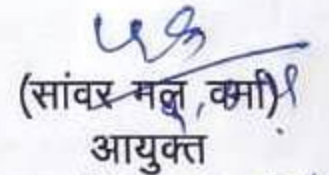 (सांवर मल वर्मा)
आयुक्त